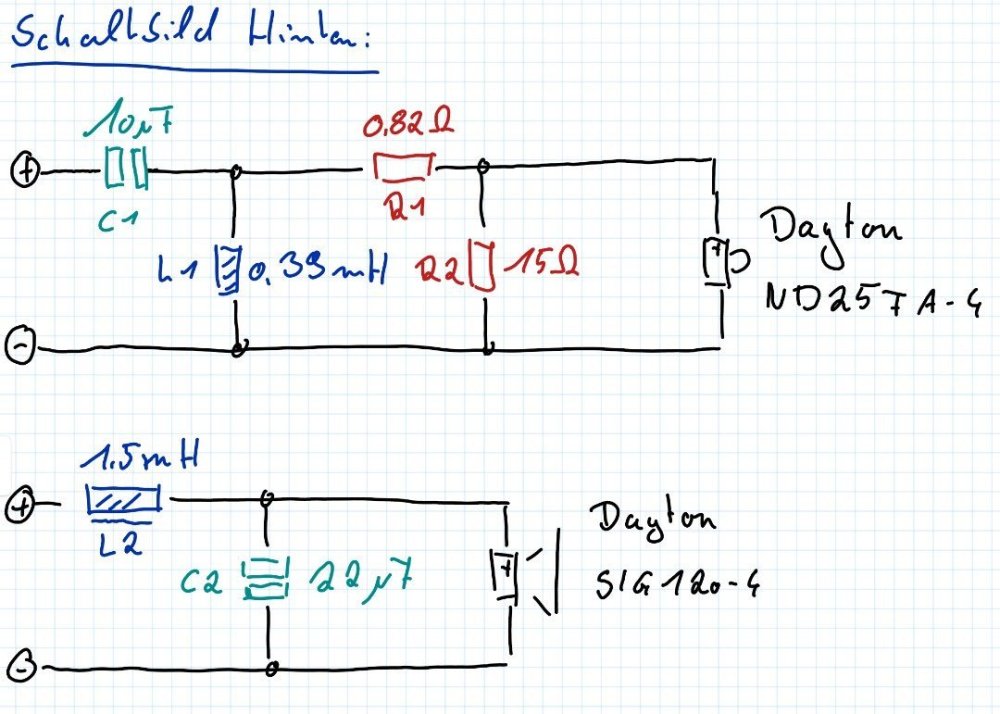 Schaltbild Hinten:
10µF
0.82Ω
+
C1
R1
L1 0.39mH
R2 15Ω
+
Dayton
ND25FA-4
-
1.5mH
+
L2
C2 22µF
+
Dayton
SIG120-4
-